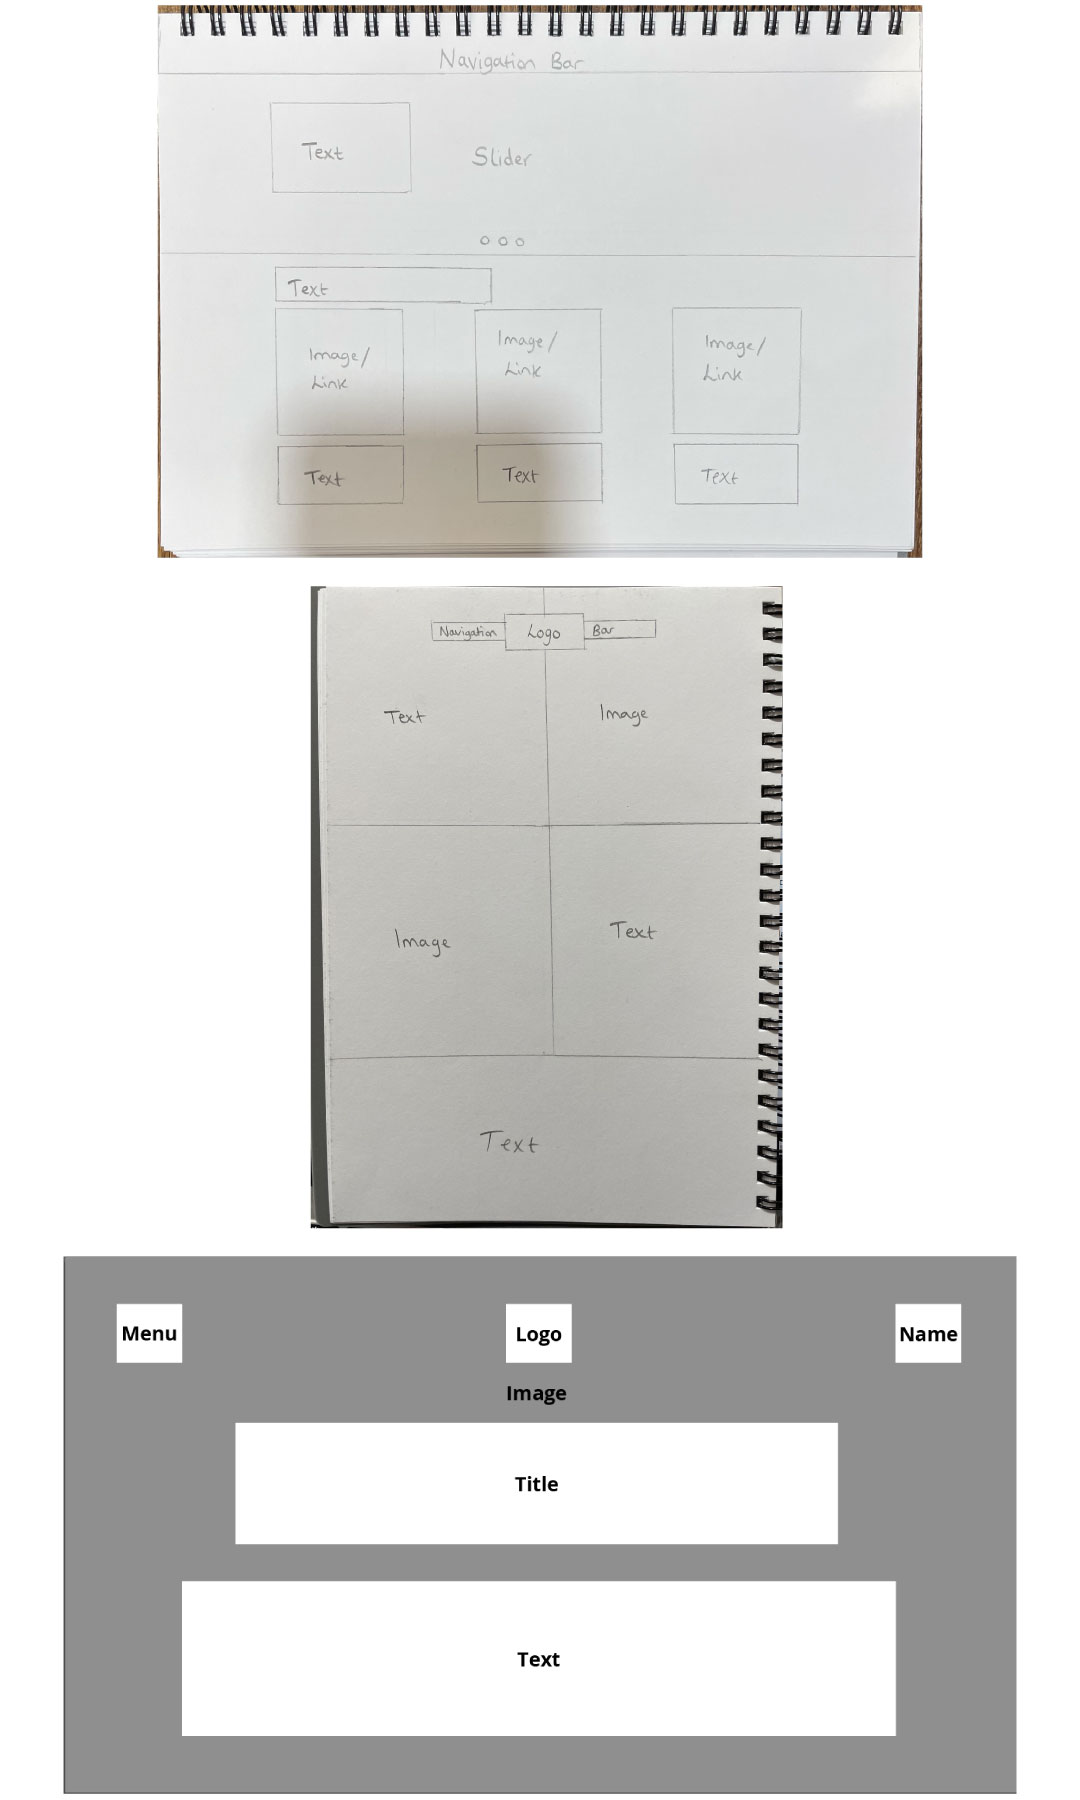 Navigation Bar
Text
Slider
Text
Image/
Link
Image/
Link
Image/
Link
Text
Text
Text
Navigation
Logo
Bar
Text
Image
Image
Text
Text
Menu
Logo
Name
Image
Title
Text